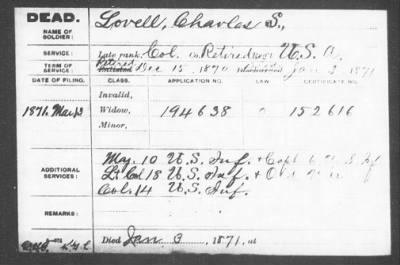 DEAD.
NAME OF SOLDIER: Lovell, Charles S.,
SERVICE: Late rank, Col. on Retired U.S.A.
TERM OF SERVICE: Retired Dec 15, 1870, Jan 3, 1871
DATE OF FILING. CLASS. APPLICATION NO. LAW CERTIFICATE NO.
Invalid,
1871. Mar Widow, 194638 152616
Minor,
Maj. 10 U.S. Inf. + Capt. 6 U.S. Inf
ADDITIONAL SERVICES: Lt Col 18 U.S. Inf. +
Col. 14 U.S. Inf.
REMARKS:
Died Jan. 3, 1871, at